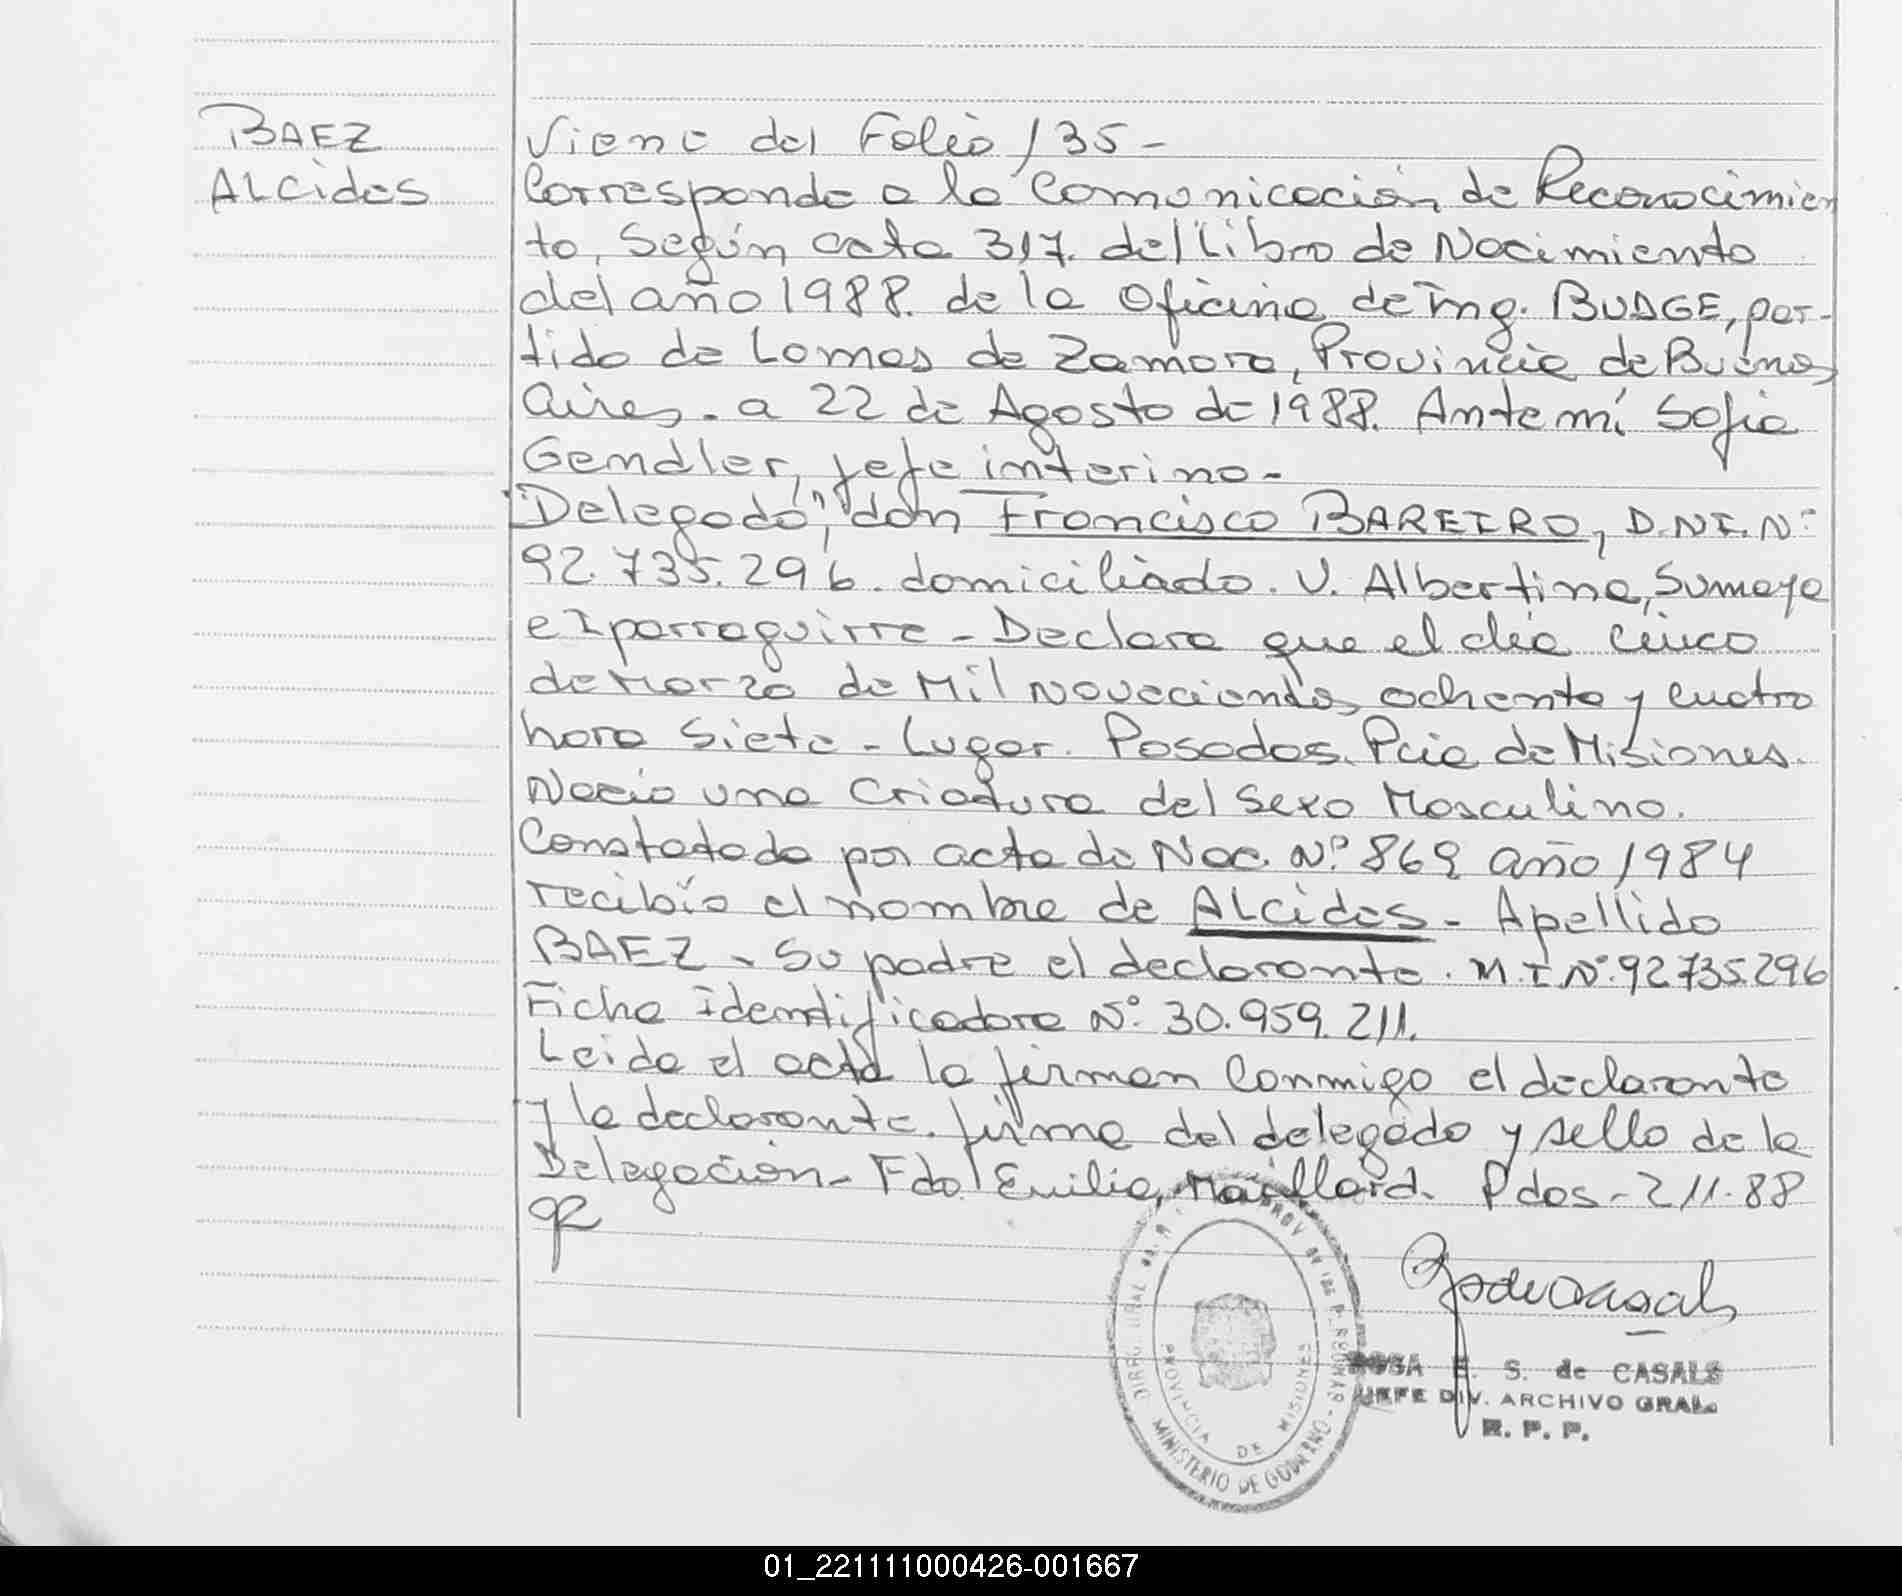 BAEZ
ALCides
Viene del Folio 135-
Corresponde a la Comunicación de Reconocimien
to, Según acta 317. del Libro de Nacimiento
del año 1988. de la Oficina de Ing. BUDGE, par-
tido de Lomas de Zamora, Provincia de Buenos
Aires. a 22 de Agosto de 1988. Ante mí Sofia
Gendler, jefe interino-
"Delegado", don Francisco BAREIRO, D.N.I. Nº
92.735.296. domiciliado. V. Albertina, Sumaya
e Iparraguirre - Declara que el día cinco
de Marzo de Mil Novecientos ochenta y cuatro
hora Siete - Lugar. Posadas. Pcia de Misiones.
Nacio una Criatura del Sexo Masculino.
Constatado por acta de Nac. Nº 869 año 1984
recibió el nombre de ALCides - Apellido
BAEZ - Su padre el declarante. M.I. Nº 92735.296
Ficha Identificadora Nº 30.959.211.
Leida el acta la firman Conmigo el declarante
y la declarante. firma del delegado y sello de la
Delegación - Fdo Emilia Maillard. Pdas - 2 11.88
ROSA E. S. de CASALS
JEFE DIV. ARCHIVO GRAL.
R. P. P.
PROVINCIA DE MISIONES
MINISTERIO DE GOBIERNO
01_221111000426-001667